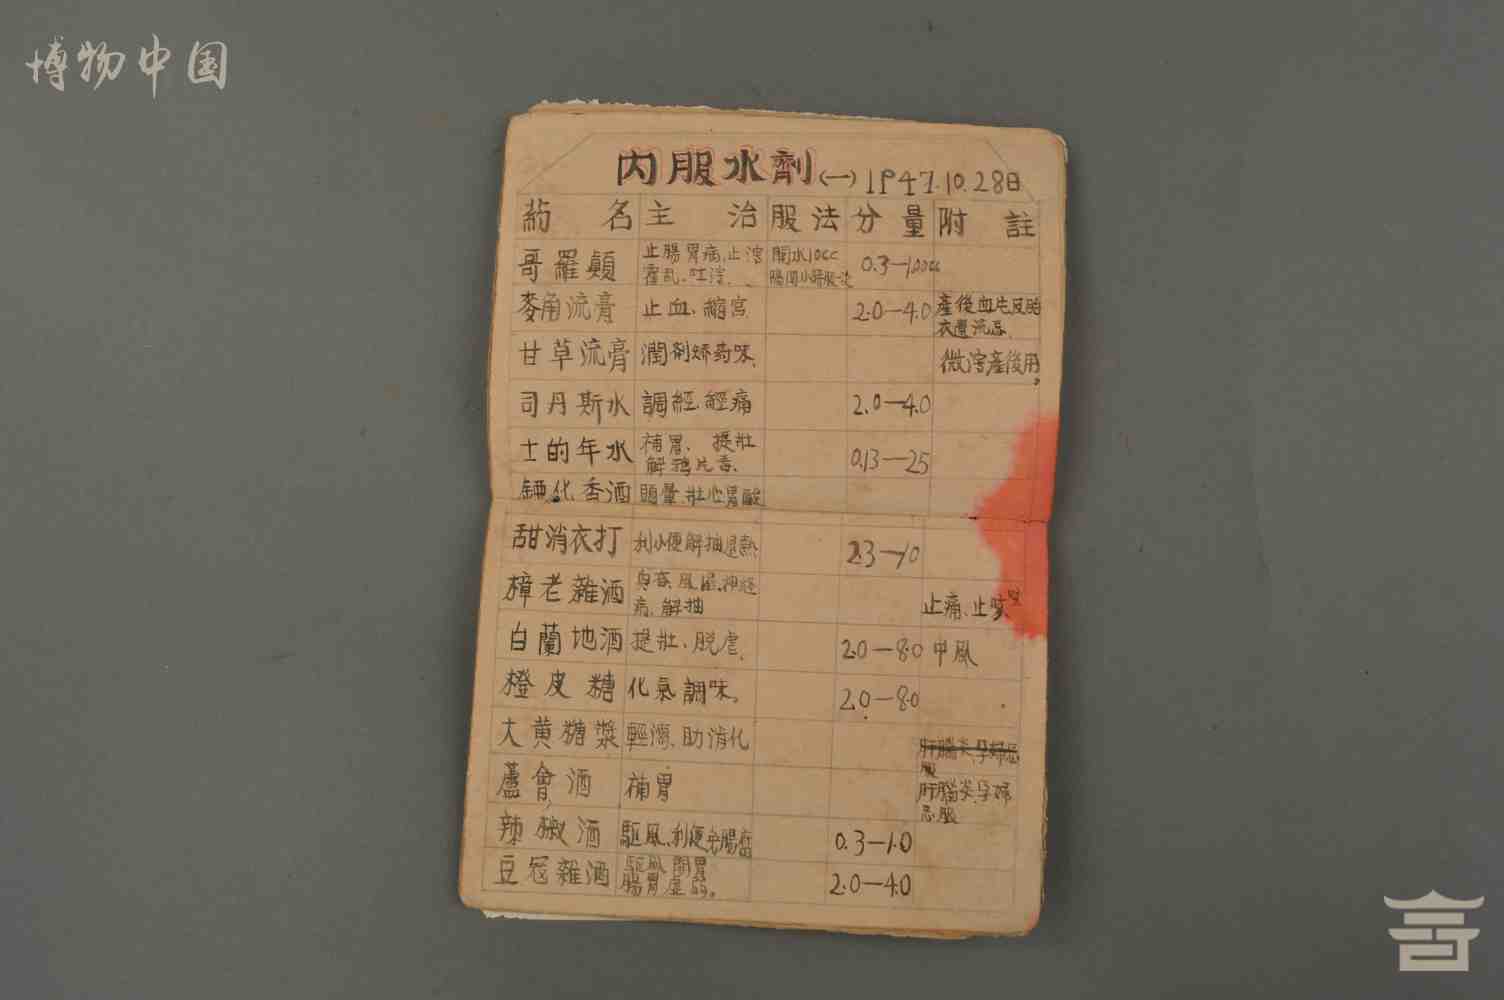 博物中国
内服水劑(一) 1947.10.28日
药名 主治 服法 分量 附註
哥羅顛 止腸胃病、止瀉 開水10cc 0.3—1.00cc
霍乱、吐瀉、
麥角流膏 止血、縮宮 2.0—4.0 產後血
衣遺流忌、
甘草流膏 潤剂矫药味、 微瀉產後用。
司丹斯水 調經、經痛 2.0—4.0
士的年水 補胃、提壯 0.13—25
解鴉片毒、
化香酒 頭暈、壯心胃酸
甜消衣打 利小便解抽退熱 2.3—10
樟老雜酒 風濕、神経 止痛、止咳、
病、解抽
白蘭地酒 提壯、脱虐、 2.0—8.0 中風
橙皮糖 化氣調味。 2.0—8.0
大黄糖漿 輕瀉、助消化 肝腦炎、孕婦忌
服
蘆會酒 補胃 肝腦炎、孕婦
忌服
辣椒酒 駆風、利便 0.3—1.0
豆冦雜酒 駆風開胃 2.0—4.0
腸胃虚弱。